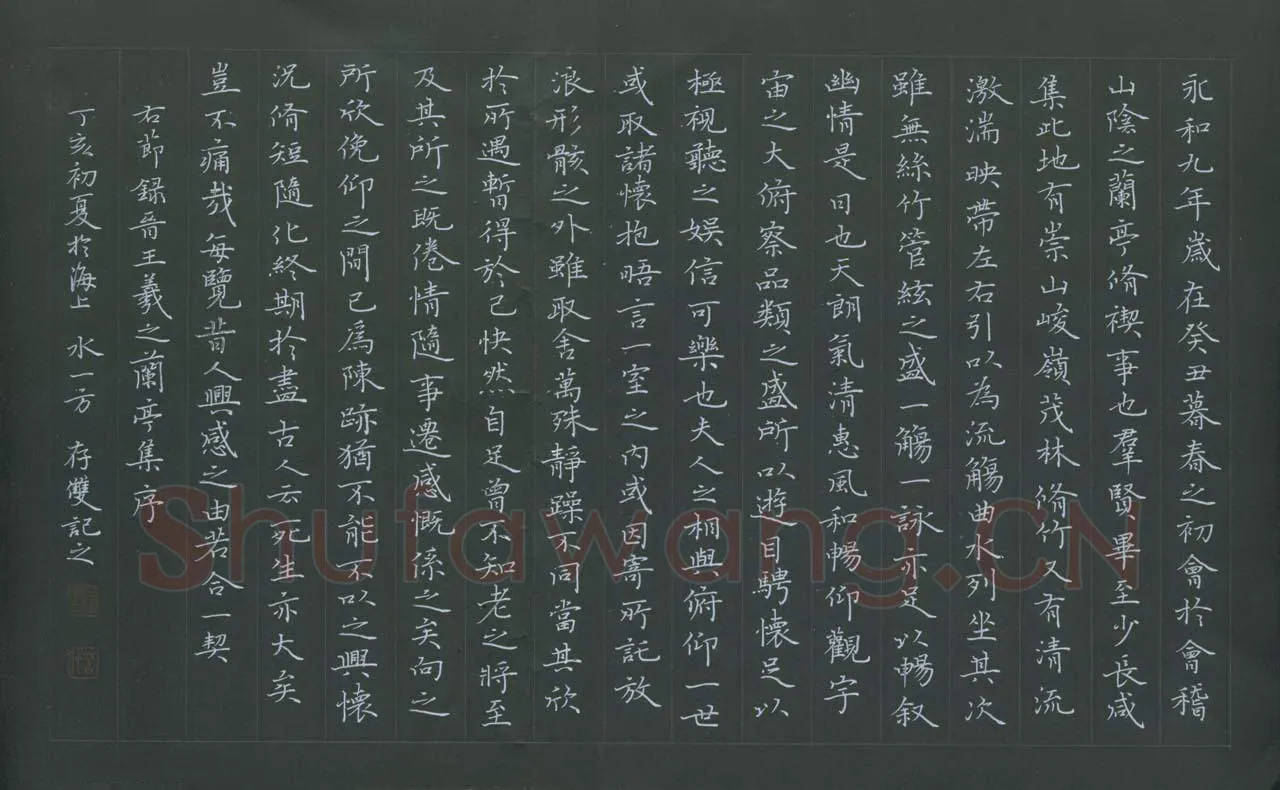 永和九年歲在癸丑暮春之初會於會稽
山陰之蘭亭脩禊事也羣賢畢至少長咸
集此地有崇山峻嶺茂林脩竹又有清流
激湍映帶左右引以為流觴曲水列坐其次
雖無絲竹管絃之盛一觴一詠亦足以暢叙
幽情是日也天朗氣清惠風和暢仰觀宇
宙之大俯察品類之盛所以遊目騁懷足以
極視聽之娛信可樂也夫人之相與俯仰一世
或取諸懷抱晤言一室之內或因寄所託放
浪形骸之外雖取舍萬殊靜躁不同當其欣
於所遇暫得於己快然自足曾不知老之將至
及其所之既倦情隨事遷感慨係之矣向之
所欣俛仰之間已為陳跡猶不能不以之興懷
況脩短隨化終期於盡古人云死生亦大矣
豈不痛哉每覽昔人興感之由若合一契
右節録晉王羲之蘭亭集序
丁亥初夏於海上 水一方 存雙記之
Shufawang.CN